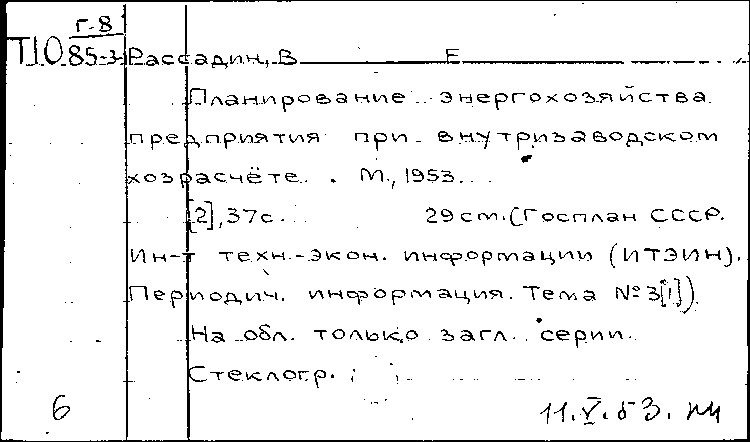 Г-8
Т10 85-3 Рассадин, В Е
Планирование энергохозяйства
предприятия при внутризаводском
хозрасчёте. М., 1953.
[2], 37с. 29 cm. (Госплан СССР.
Ин-т техн.-экон. информации (ИТЭИН).
Периодич. информация. Тема № 3[1])
На обл. только загл. серии.
Стеклогр.
6 11.V.53.